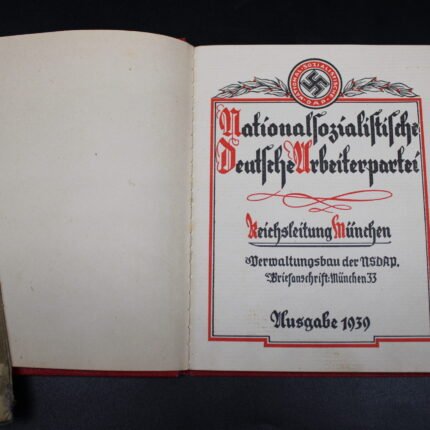 NATIONALSOZIALISTISCHE D.A.P.
Nationalsozialistische
Deutsche Arbeiterpartei
Reichsleitung München
Verwaltungsbau der NSDAP.
Briefanschrift: München 33
Ausgabe 1939